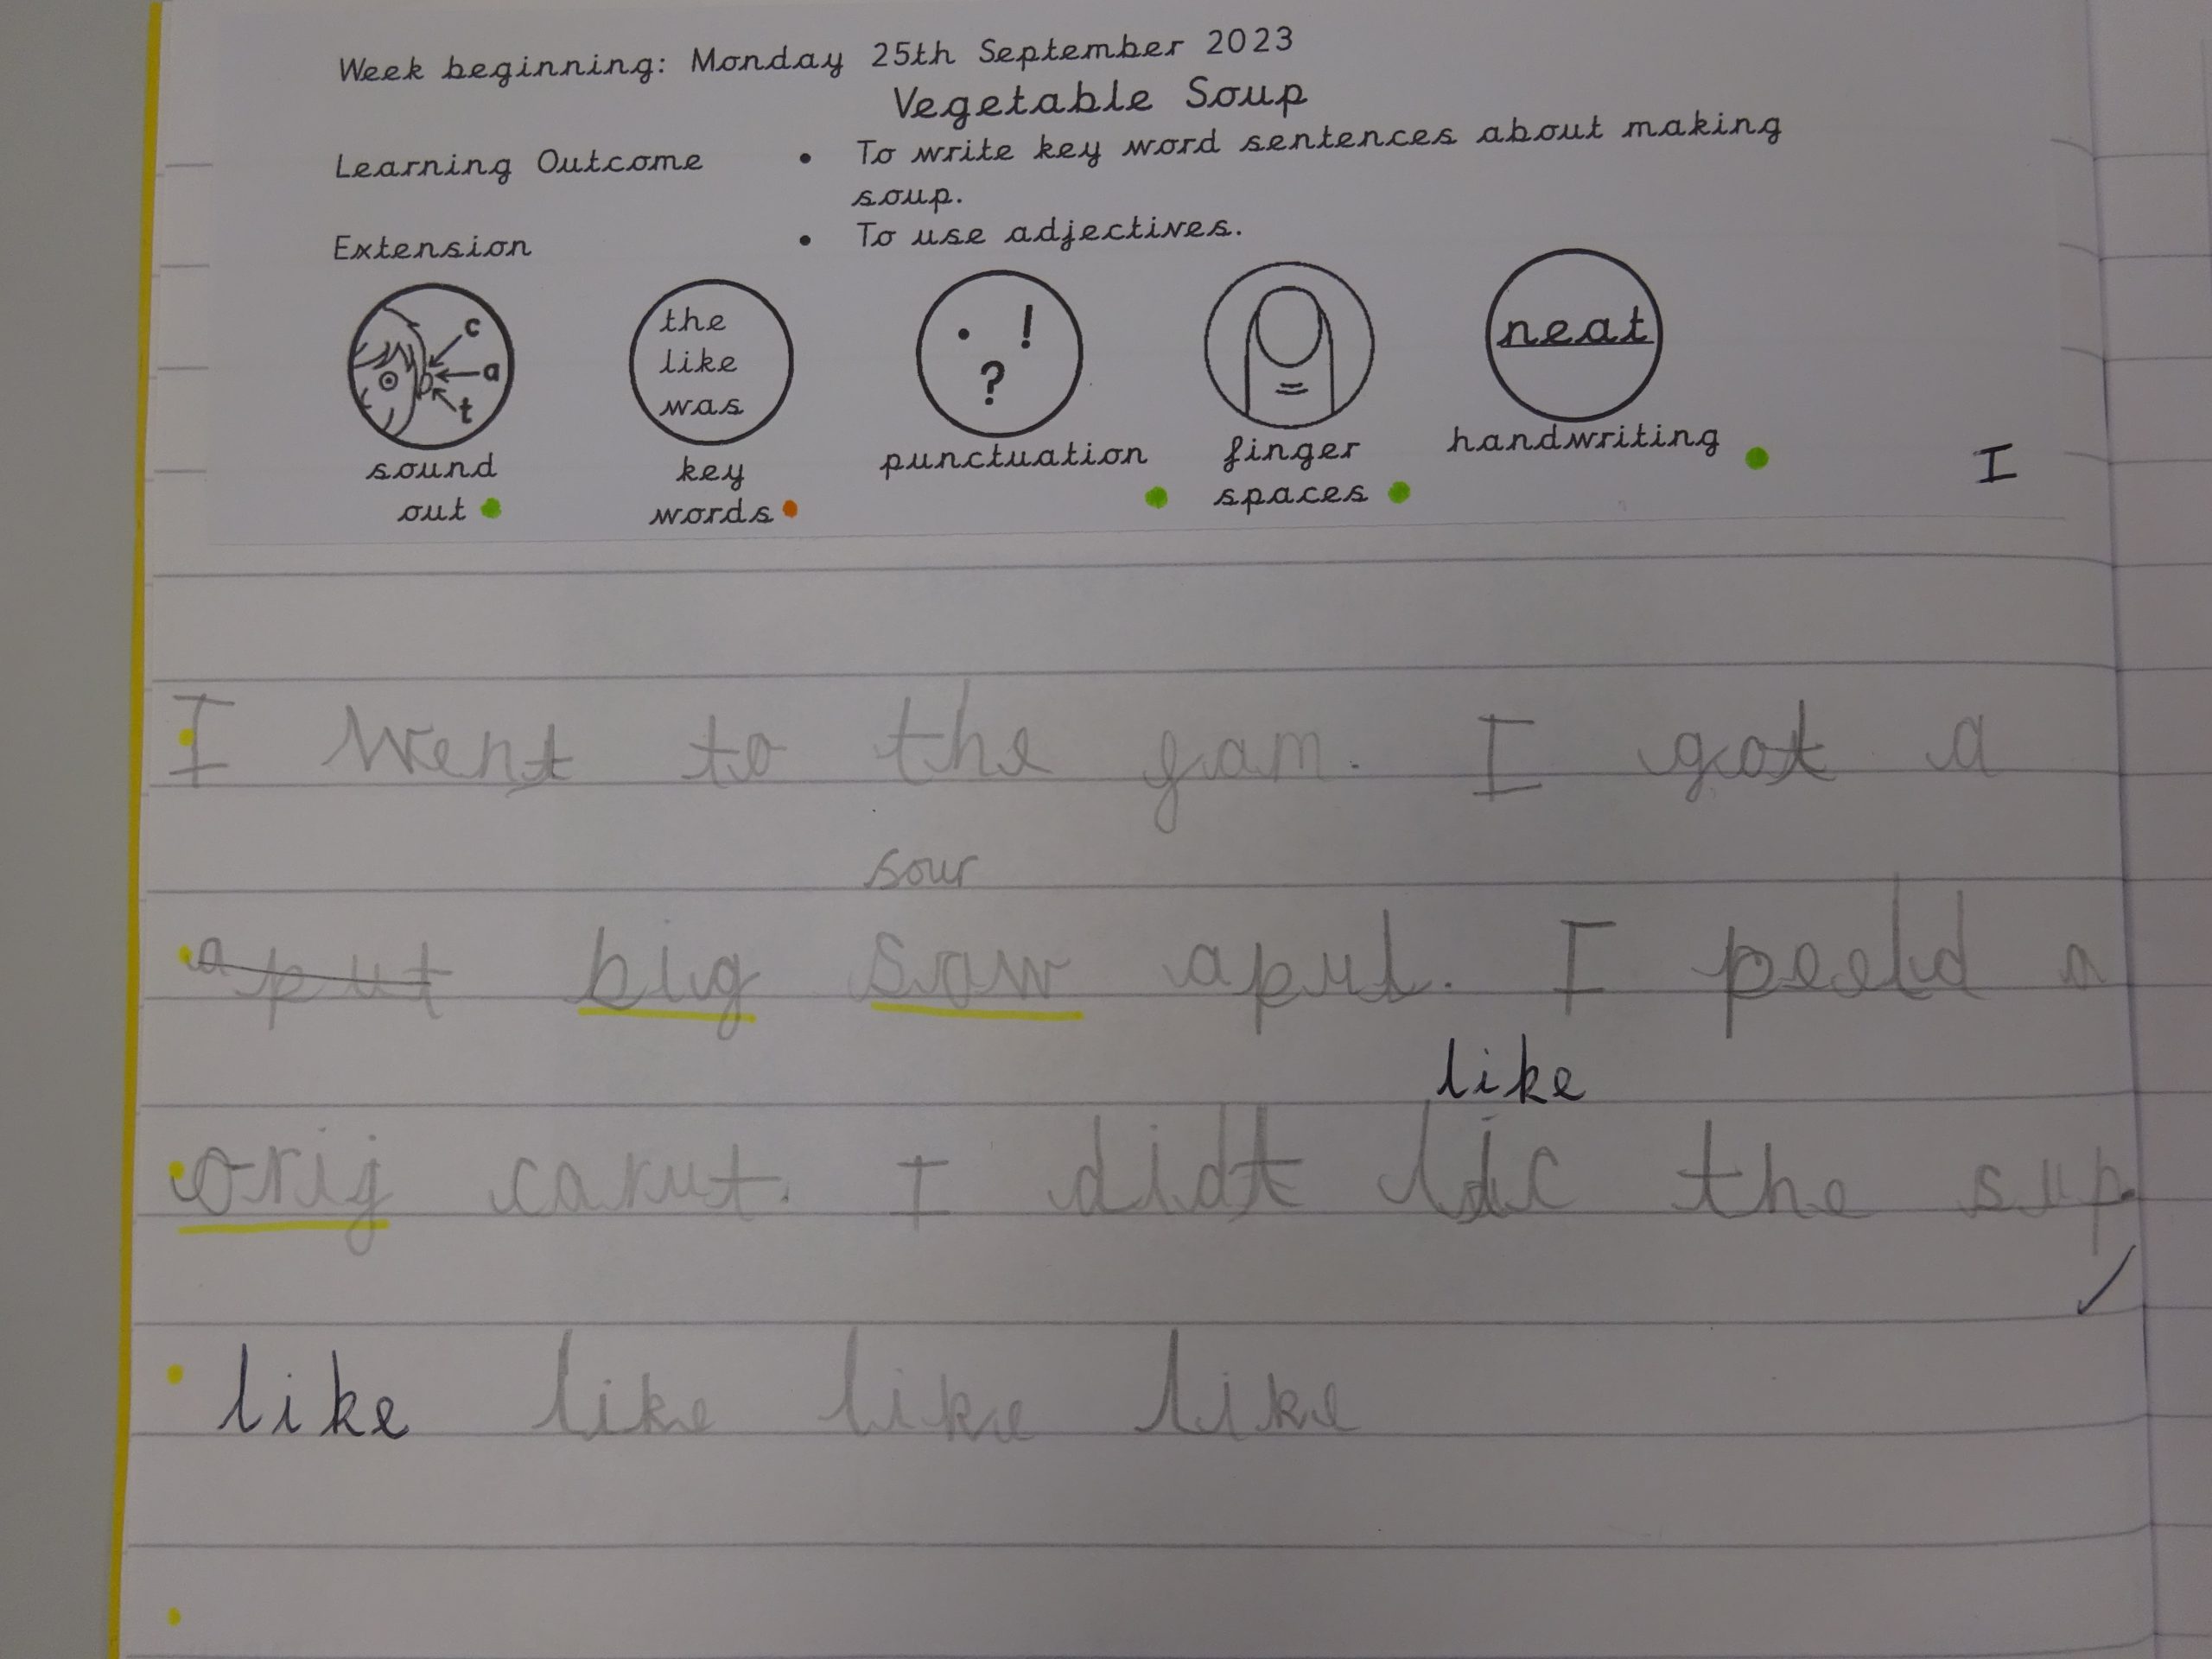 Week beginning: Monday 25th September 2023
Vegetable Soup
Learning Outcome • To write key word sentences about making
soup.
Extension • To use adjectives.
c
a
t
the
like
was
. !
?
neat
sound
out
key
words
punctuation
finger
spaces
handwriting
I
I went to the gam. I got a
sour
aput big sow apul. I peeld a
like
orig carut. I didt lic the sup.
like like like like